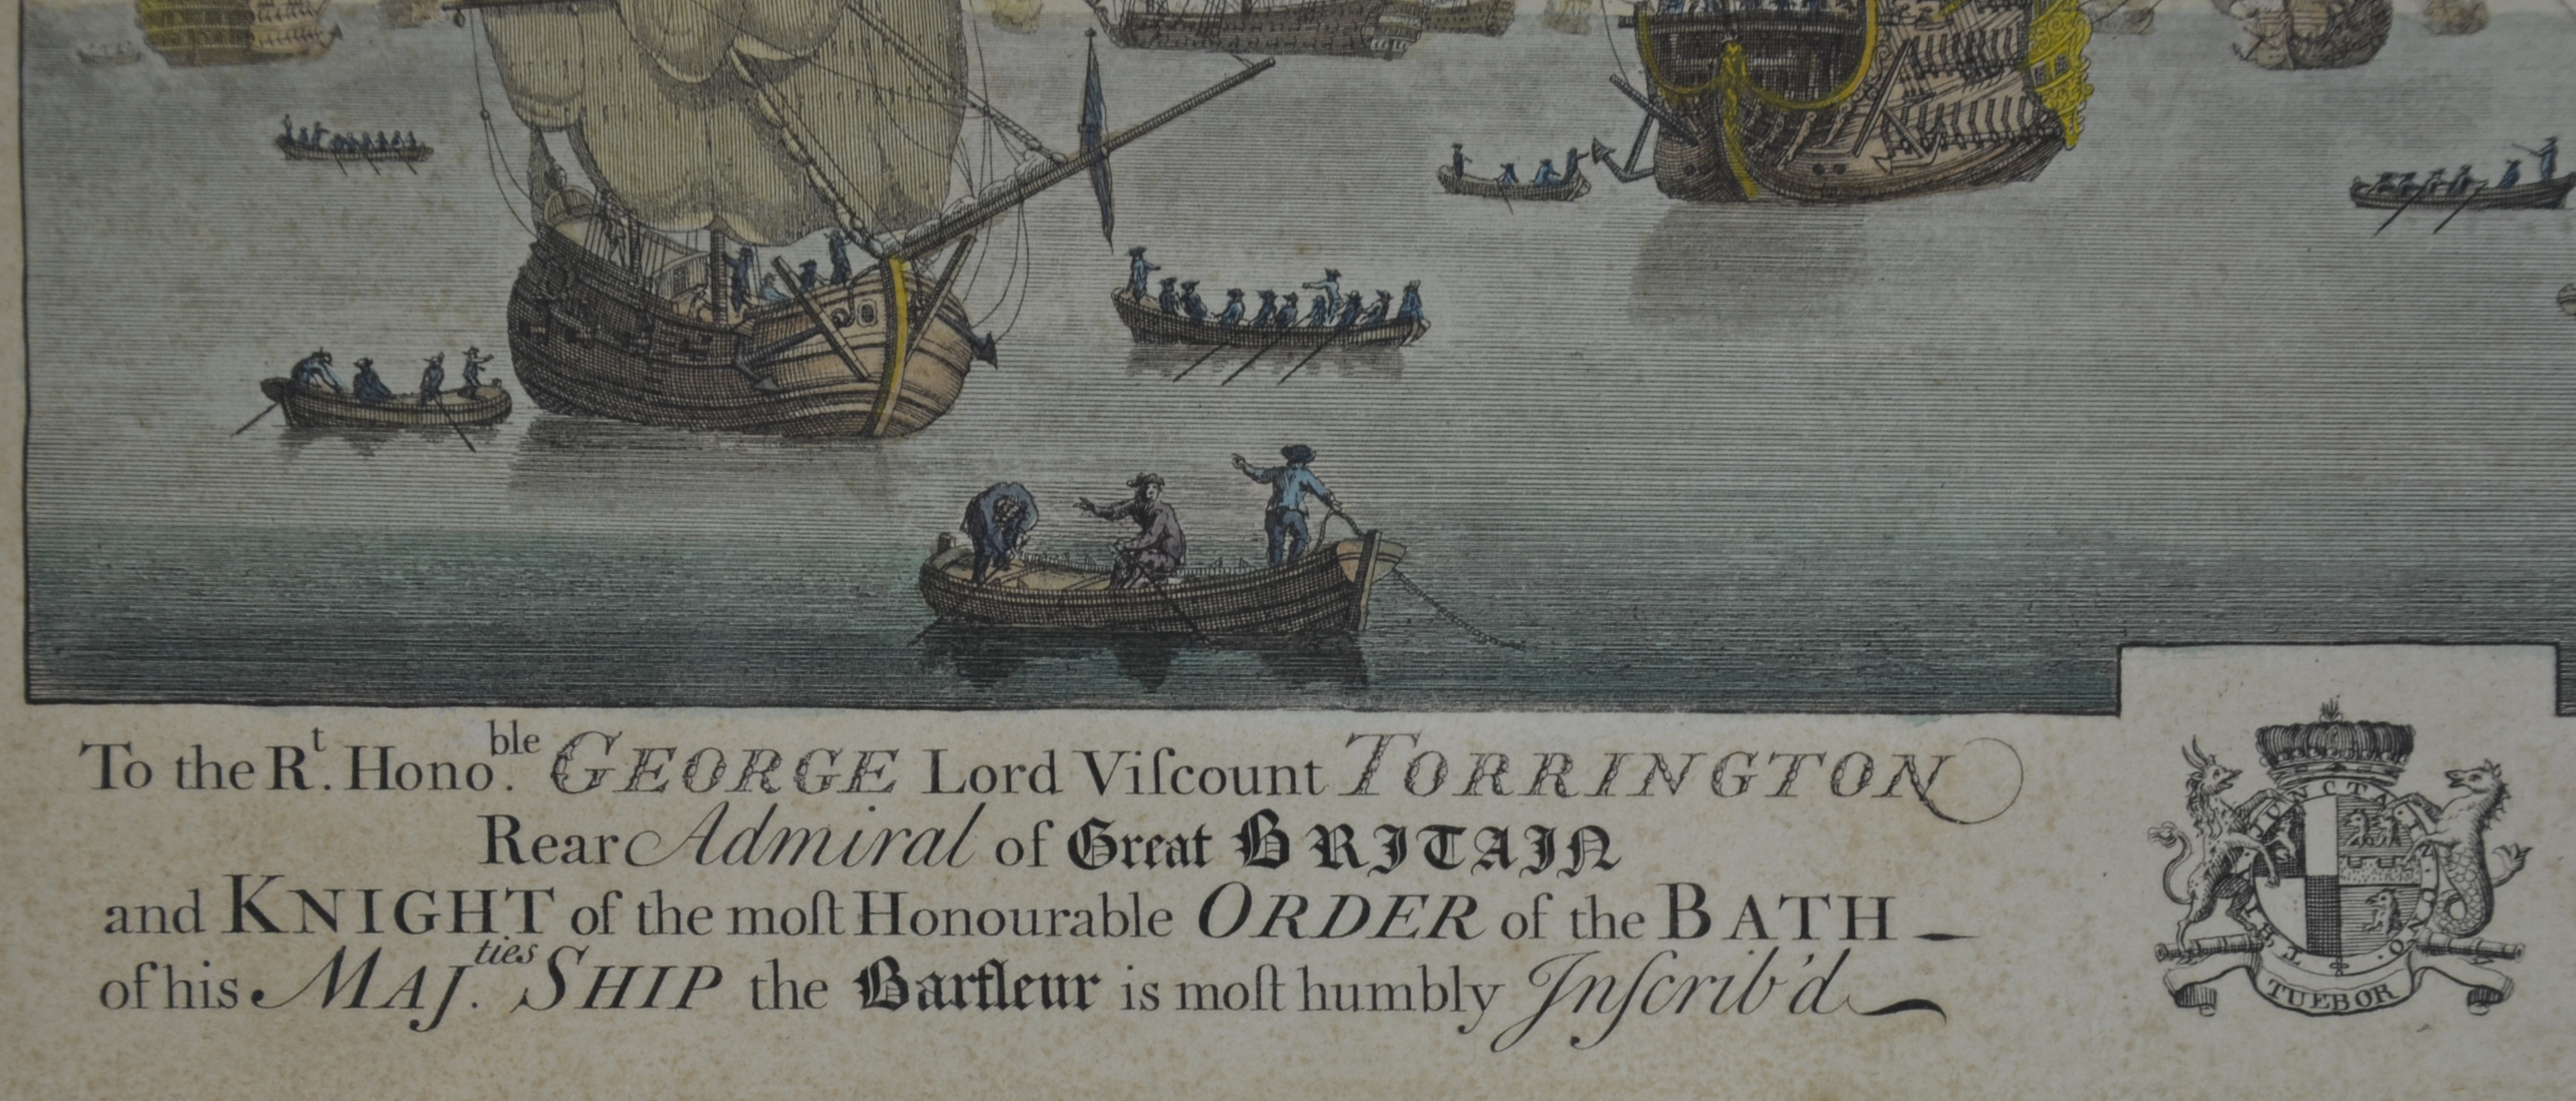 To the Rᵗ. Honoᵇˡᵉ. GEORGE Lord Viſcount TORRINGTON
Rear Admiral of Great BRITAIN
and KNIGHT of the moſt Honourable ORDER of the BATH —
of his MAJ.ᵗⁱᵉˢ SHIP the Barfleur is moſt humbly Inſcrib'd
TUEBOR